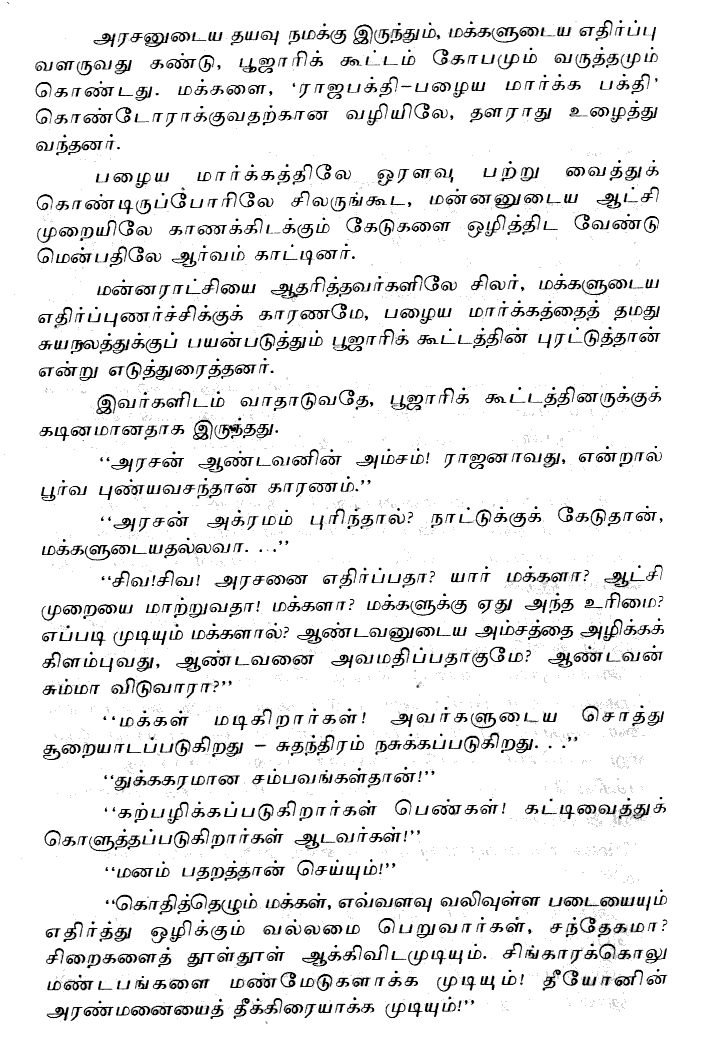 அரசனுடைய தயவு நமக்கு இருந்தும், மக்களுடைய எதிர்ப்பு
வளருவது கண்டு, பூஜாரிக் கூட்டம் கோபமும் வருத்தமும்
கொண்டது. மக்களை, ‘ராஜபக்தி–பழைய மார்க்க பக்தி’
கொண்டோராக்குவதற்கான வழியிலே, தளராது உழைத்து
வந்தனர்.
பழைய மார்க்கத்திலே ஓரளவு பற்று வைத்துக்
கொண்டிருப்போரிலே சிலருங்கூட, மன்னனுடைய ஆட்சி
முறையிலே காணக்கிடக்கும் கேடுகளை ஒழித்திட வேண்டு
மென்பதிலே ஆர்வம் காட்டினர்.
மன்னராட்சியை ஆதரித்தவர்களிலே சிலர், மக்களுடைய
எதிர்ப்புணர்ச்சிக்குக் காரணமே, பழைய மார்க்கத்தைத் தமது
சுயநலத்துக்குப் பயன்படுத்தும் பூஜாரிக் கூட்டத்தின் புரட்டுத்தான்
என்று எடுத்துரைத்தனர்.
இவர்களிடம் வாதாடுவதே, பூஜாரிக் கூட்டத்தினருக்குக்
கடினமானதாக இருந்தது.
‘‘அரசன் ஆண்டவனின் அம்சம்! ராஜனாவது, என்றால்
பூர்வ புண்யவசந்தான் காரணம்.’’
‘‘அரசன் அக்ரமம் புரிந்தால்? நாட்டுக்குக் கேடுதான்,
மக்களுடையதல்லவா. . .’’
‘‘சிவ!சிவ! அரசனை எதிர்ப்பதா? யார் மக்களா? ஆட்சி
முறையை மாற்றுவதா! மக்களா? மக்களுக்கு ஏது அந்த உரிமை?
எப்படி முடியும் மக்களால்? ஆண்டவனுடைய அம்சத்தை அழிக்கக்
கிளம்புவது, ஆண்டவனை அவமதிப்பதாகுமே? ஆண்டவன்
சும்மா விடுவாரா?’’
‘‘மக்கள் மடிகிறார்கள்! அவர்களுடைய சொத்து
சூறையாடப்படுகிறது – சுதந்திரம் நசுக்கப்படுகிறது. . .’’
‘‘துக்ககரமான சம்பவங்கள்தான்!’’
‘‘கற்பழிக்கப்படுகிறார்கள் பெண்கள்! கட்டிவைத்துக்
கொளுத்தப்படுகிறார்கள் ஆடவர்கள்!’’
‘‘மனம் பதறத்தான் செய்யும்!’’
‘‘கொதித்தெழும் மக்கள், எவ்வளவு வலிவுள்ள படையையும்
எதிர்த்து ஒழிக்கும் வல்லமை பெறுவார்கள், சந்தேகமா?
சிறைகளைத் தூள்தூள் ஆக்கிவிடமுடியும். சிங்காரக்கொலு
மண்டபங்களை மண்மேடுகளாக்க முடியும்! தீயோனின்
அரண்மனையைத் தீக்கிரையாக்க முடியும்!’’